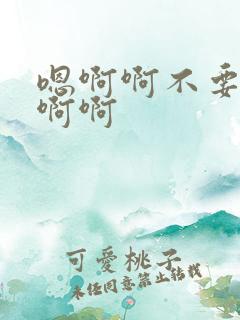 嗯啊啊不要
啊啊
可愛桃子
未经同意禁止转载